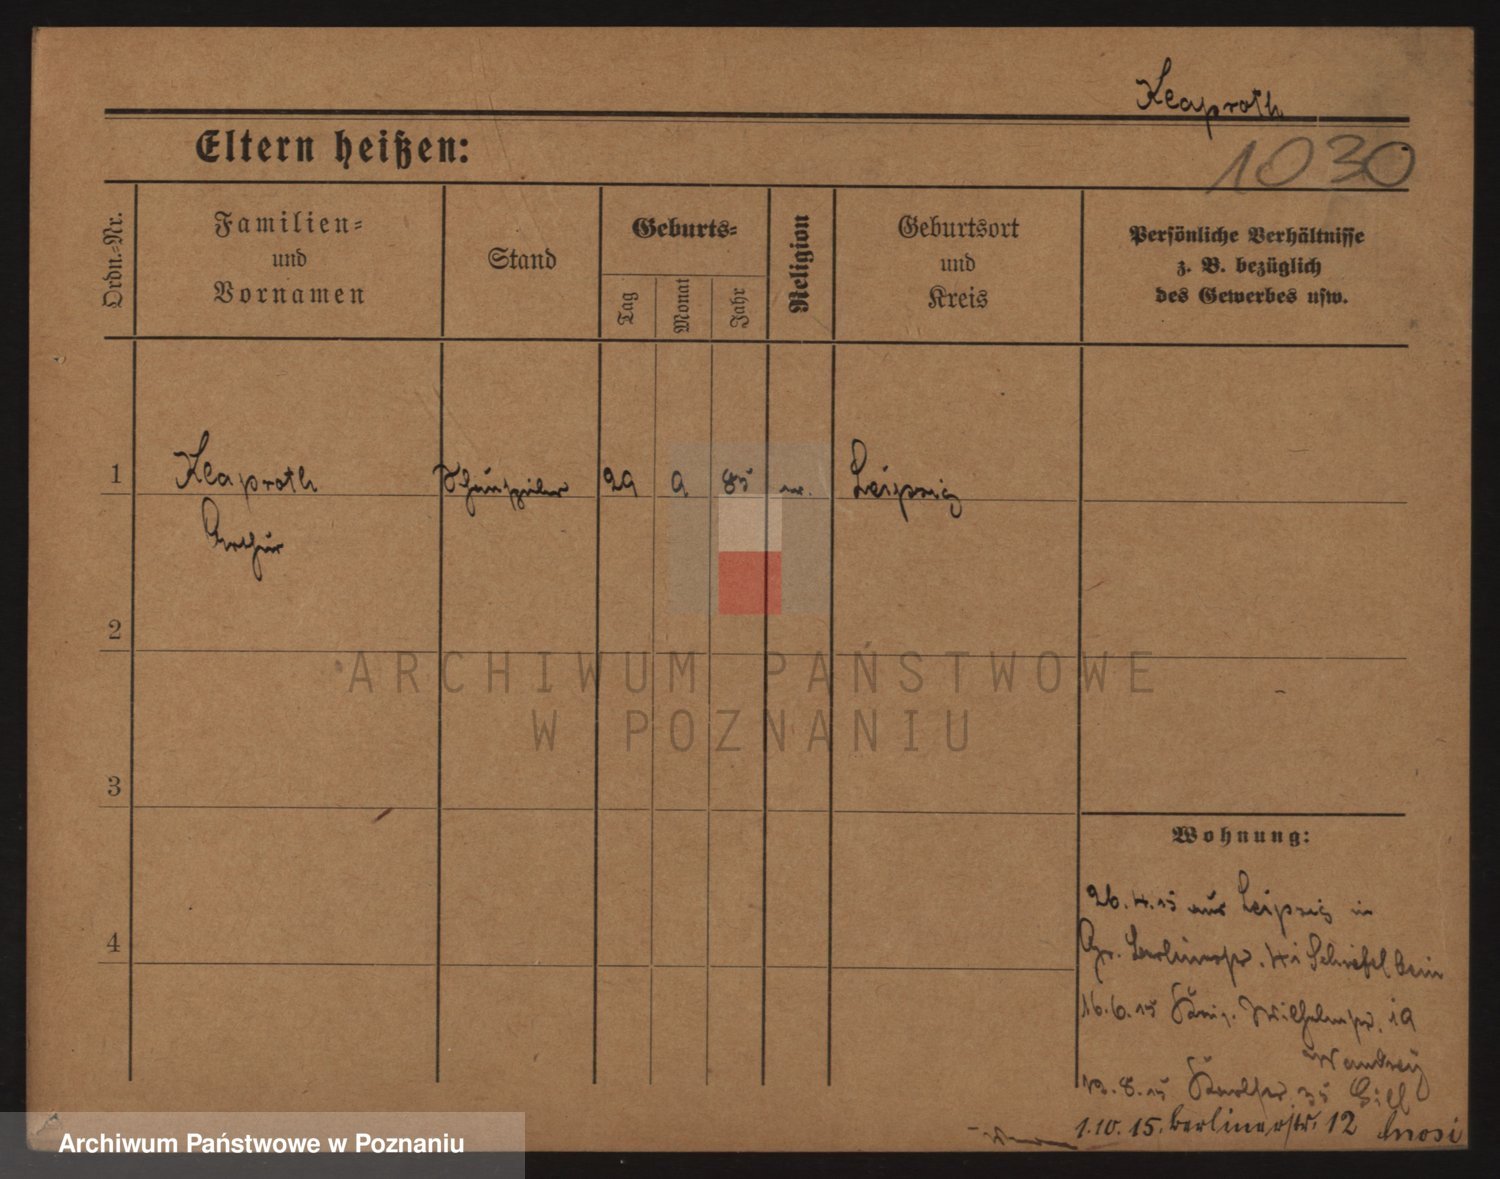 Klaproth
Eltern heißen:
1030
Ordn.-Nr.
Familien-
und
Vornamen
Stand
Geburts-
Tag
Monat
Jahr
Religion
Geburtsort
und
Kreis
Persönliche Verhältnisse
z. B. bezüglich
des Gewerbes usw.
1 Klaproth Schauspieler 29 9 85 Leipzig
Arthur
2
3
4
ARCHIWUM PAŃSTWOWE
W POZNANIU
Wohnung:
26.4.15 aus Leipzig in
Gr. Berlinerstr. Schiefelbein
16.6.15 Wilhelmstr.
1.10.15. Berlinerstr. 12
Archiwum Państwowe w Poznaniu